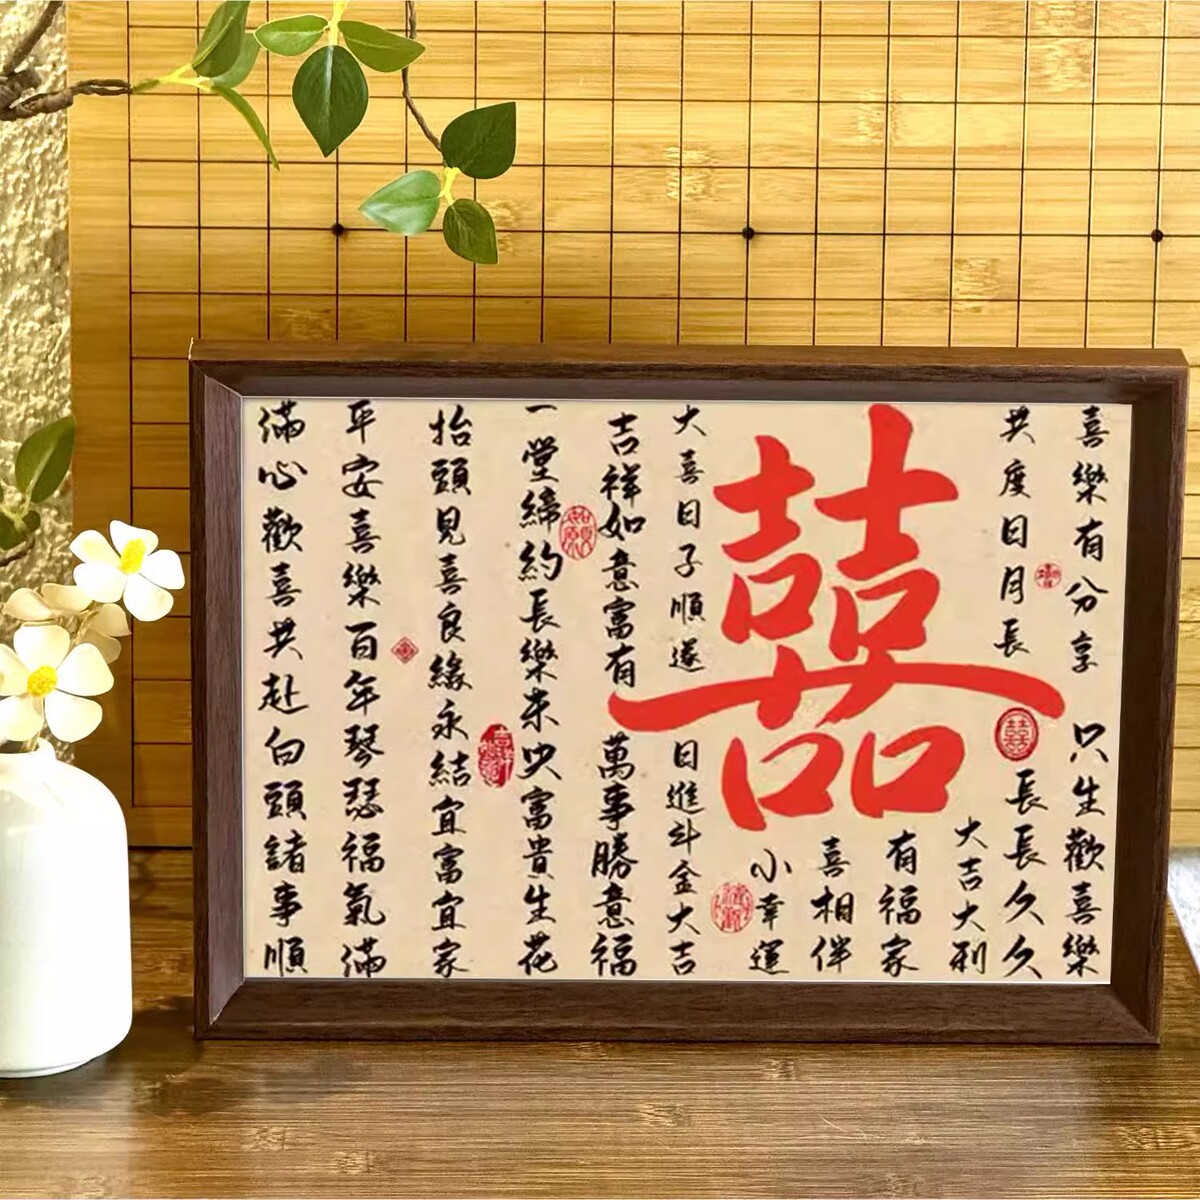 喜樂有分享 只生歡喜樂
共度日月長 長長久久
囍
囍
大吉大利
有福家
喜相伴
小幸運
大喜日子順遂 日進斗金大吉
吉祥如意富有 萬事勝意福
一堂締約長樂未央富貴生花
抬頭見喜良緣永結宜富宜家
平安喜樂百年琴瑟福氣滿
滿心歡喜共赴白頭諸事順